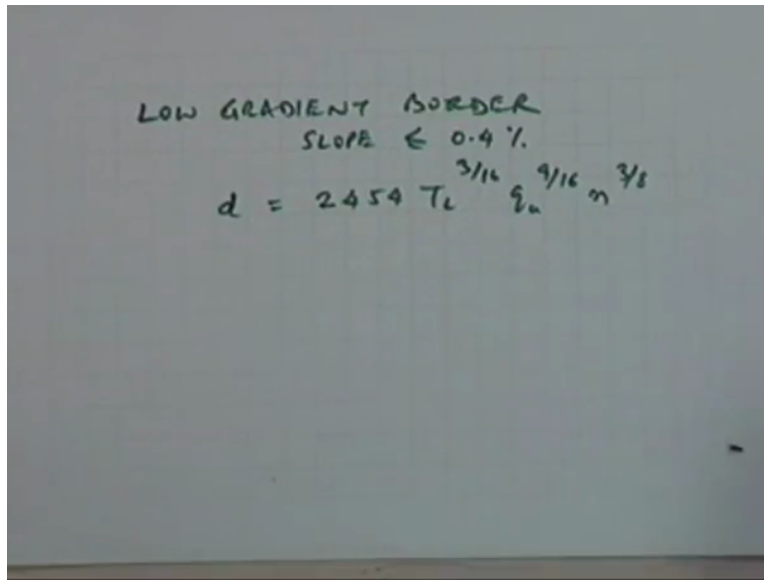 LOW GRADIENT BORDER
SLOPE ≤ 0.4 %.
d = 2454 T_L^3/16 q_u^9/16 n^3/8